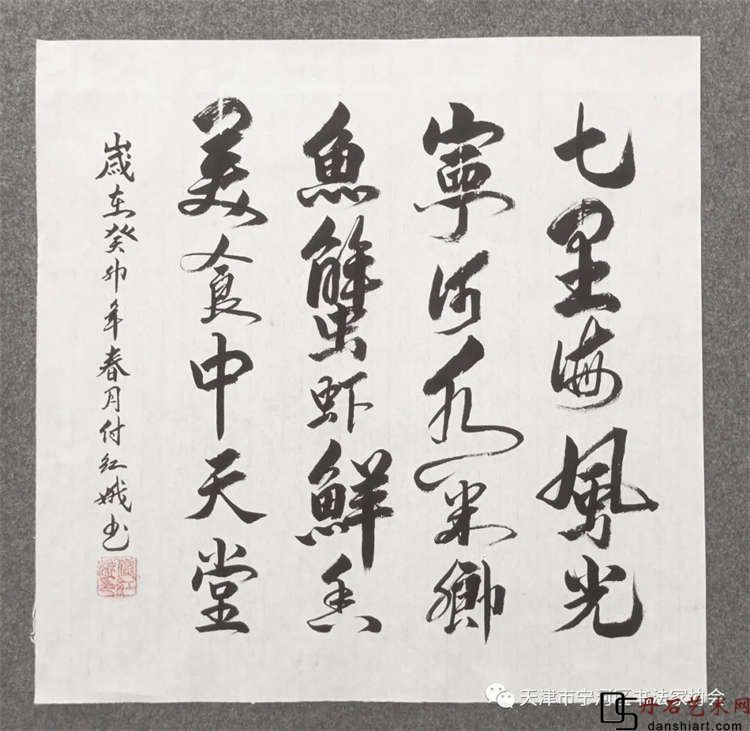 七里海風光
寧河水米鄉
魚蟹虾鮮香
美食中天堂
歲在癸卯年春月付红娥书
天津市宁河区书法家协会
DS 丹石艺术网
danshiart.com